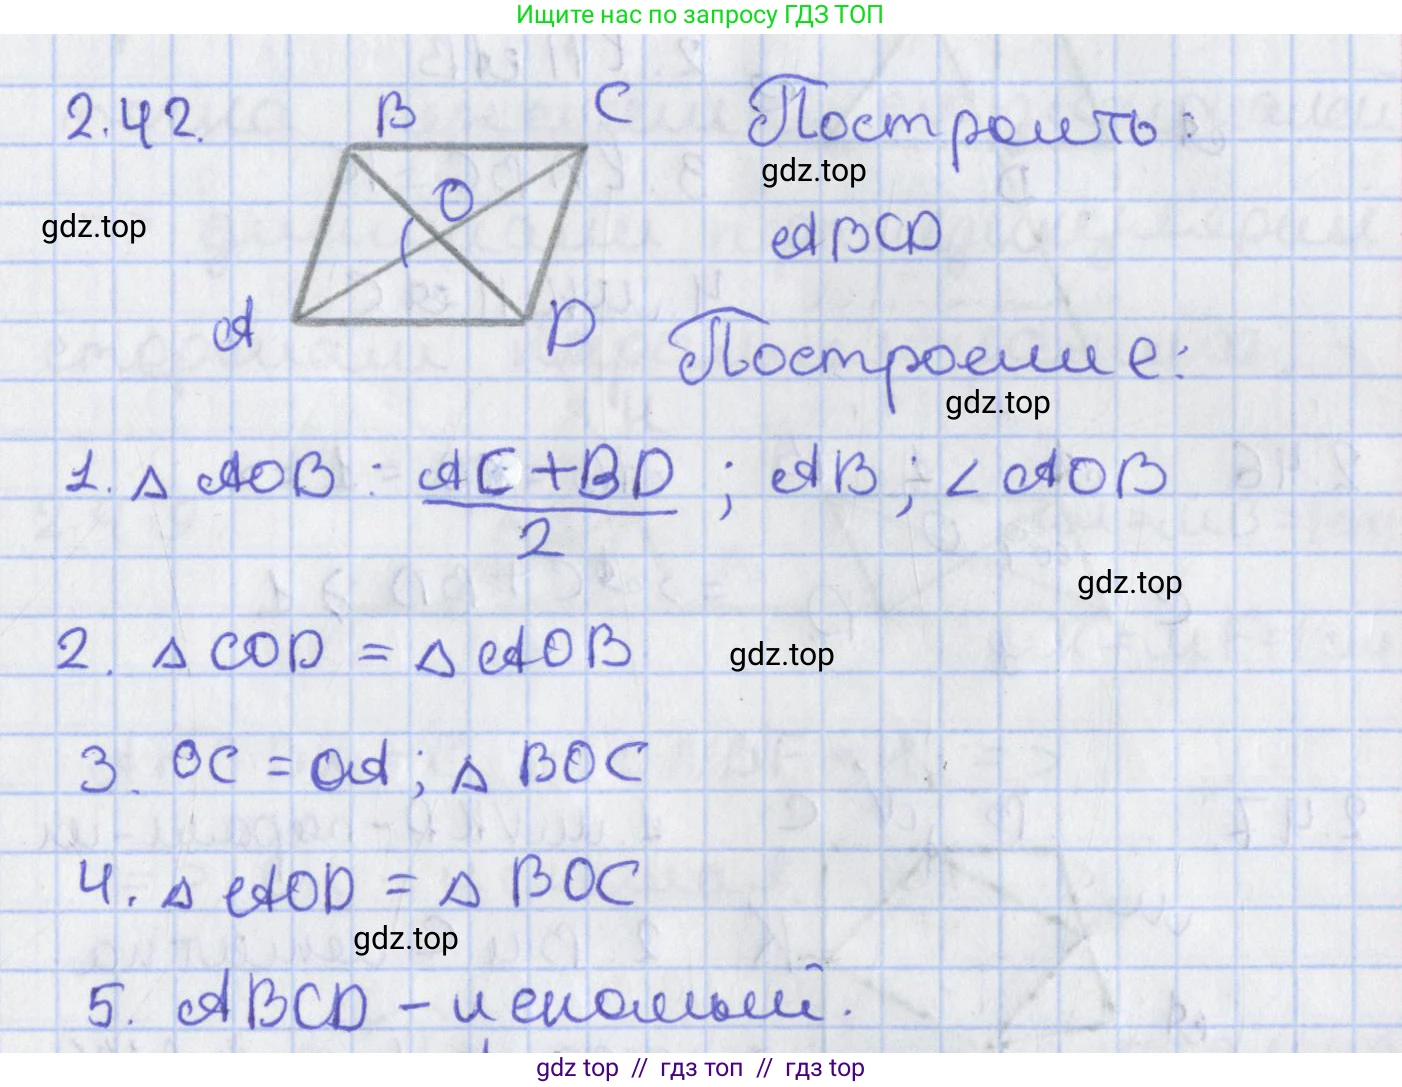 Ищите нас по запросу ГДЗ ТОП
2.42. B C Построить:
gdz.top
gdz.top
O
ABCD
A D
Построение:
gdz.top
1. △ AOB : (AC+BD)/2 ; AB ; ∠ AOB
gdz.top
2. △ COD = △ AOB
gdz.top
3. OC = OA ; △ BOC
4. △ AOD = △ BOC
gdz.top
5. ABCD – искомый.
gdz top // гдз топ // гдз.top